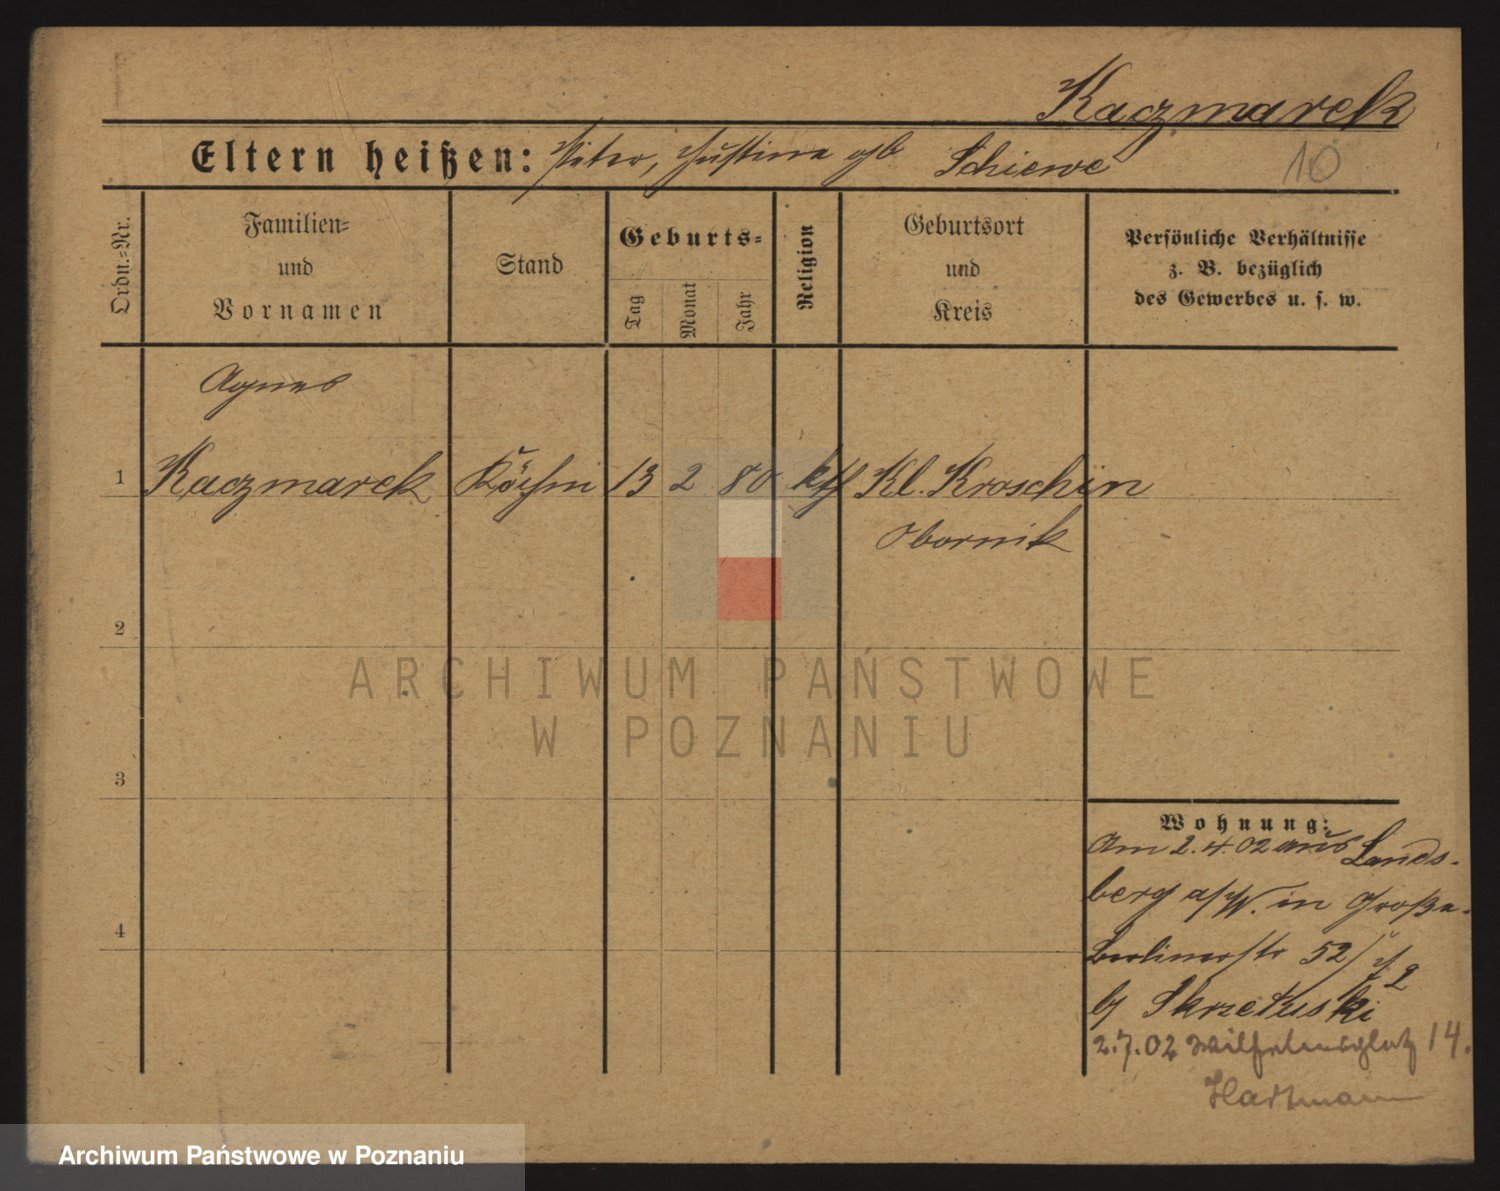 Kaczmarek
Eltern heißen: Peter, Justine gb Schiewe
10
Ordn.=Nr.
Familien=
und
Vornamen
Stand
Geburts=
Tag
Monat
Jahr
Religion
Geburtsort
und
Kreis
Persönliche Verhältnisse
z. B. bezüglich
des Gewerbes u. s. w.
Agnes
1 Kaczmarek Köchin 13 2 80 kth Kl. Kroschin
Obornik
2
ARCHIWUM PAŃSTWOWE
W POZNANIU
3
4
Wohnung:
Am 2.4.02 aus Lands-
berg a/W. in Große-
Berlinerstr 52
b/ Skrzetuski
2.7.02 Wilhelmsplatz 14.
Hartmann
Archiwum Państwowe w Poznaniu